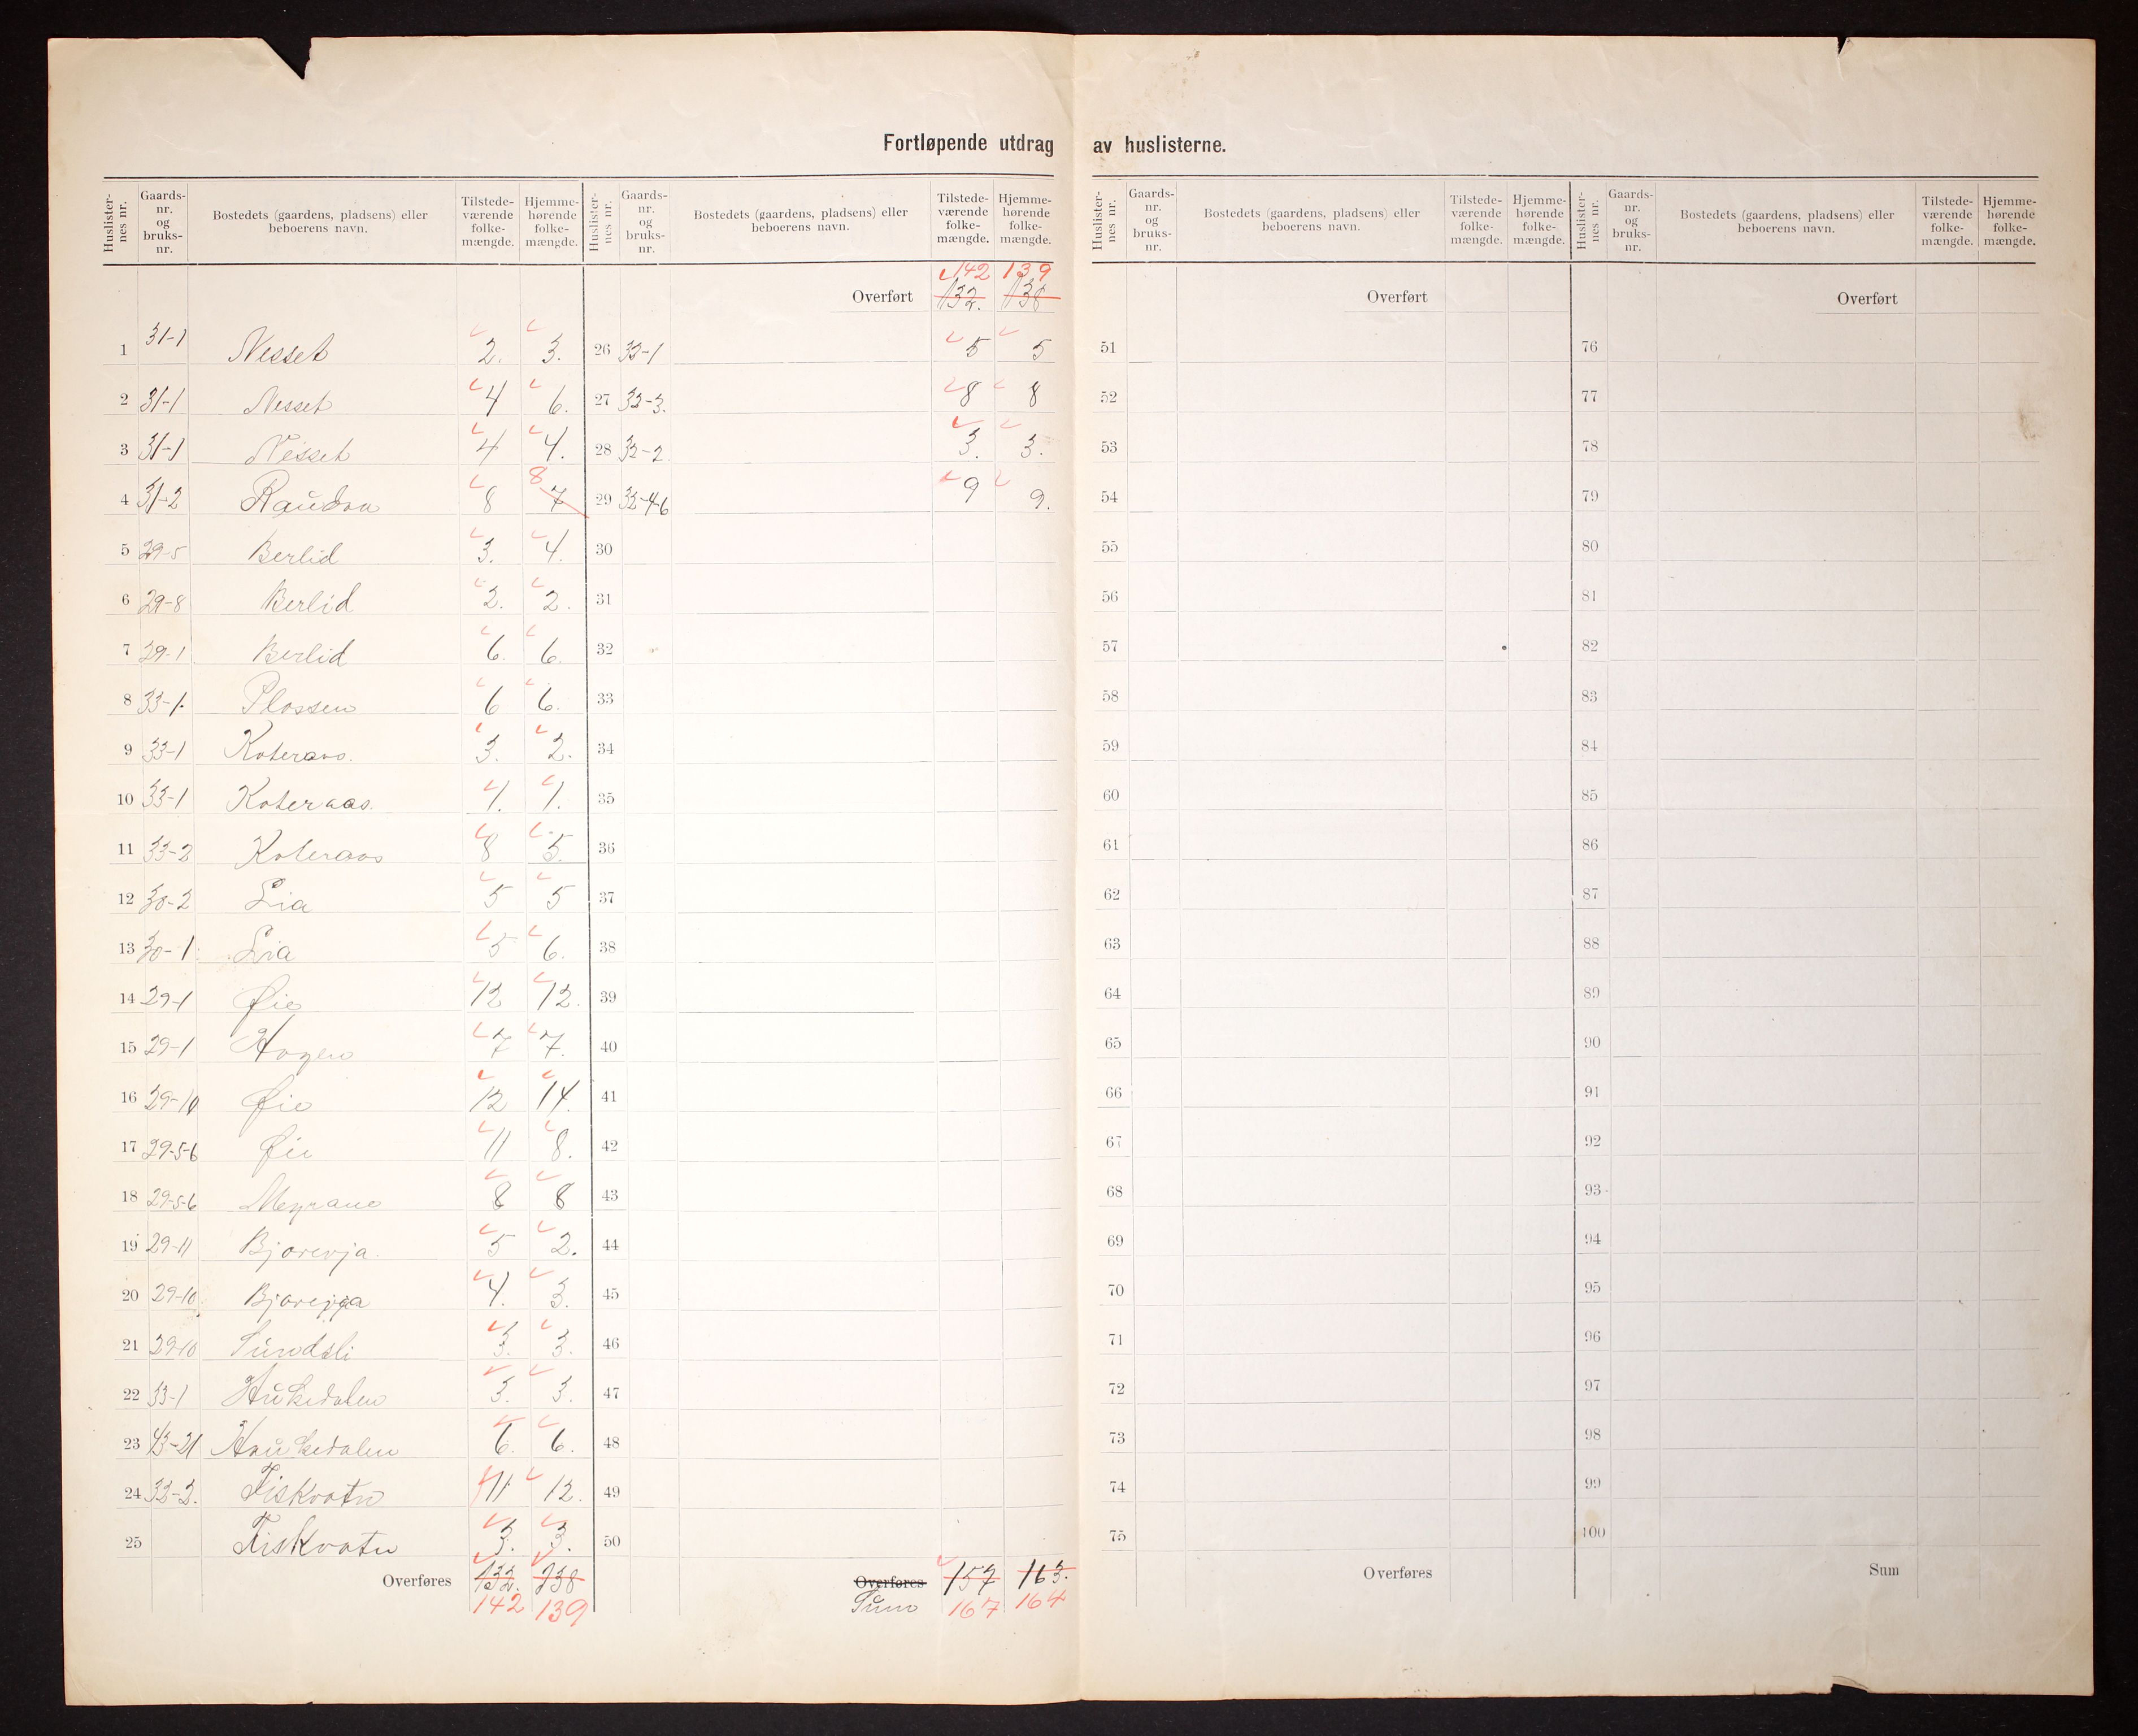 Fortløpende utdrag av huslisterne.
Huslisternes nr. Gaards-nr. og bruks-nr. Bostedets (gaardens, pladsens) eller beboerens navn. Tilstedeværende folkemængde. Hjemmehørende folkemængde.
1 31-1 Nesset 2. 3.
2 31-1 Nesset 4 6.
3 31-1 Nesset 4 4.
4 31-2 Raudaa 8 7 8
5 29-5 Berlid 3. 4.
6 29-8 Berlid 2. 2.
7 29-1 Berlid 6. 6.
8 33-1. Plassen 6 6.
9 33-1 Koteraas. 3. 2.
10 33-1 Koteraas. 1. 1.
11 33-2 Koteraas 8 5.
12 30-2 Lia 5 5
13 30-1 Lia 5 6.
14 29-1 Øie 12 12.
15 29-1 Hagen 7 7.
16 29-10 Øie 12 14.
17 29-5-6 Øie 11 8.
18 29-5-6 Myrane 8 8
19 29-11 Bjørevja. 5 2.
20 29-10 4. 3.
21 29-10 Sundsli 3. 3.
22 33-1 3. 3.
23 43-21 Haukedalen 6. 6.
24 32-2. Fiskvatn 11 12.
25 Fiskvatn 3. 3.
Overføres 132. 138
142 139
Huslisternes nr. Gaards-nr. og bruks-nr. Bostedets (gaardens, pladsens) eller beboerens navn. Tilstedeværende folkemængde. Hjemmehørende folkemængde.
142 139
Overført 132. 138
26 32-1 5 5
27 32-3. 8 8
28 32-2. 3. 3.
29 32-4-6 9 9.
30
31
32
33
34
35
36
37
38
39
40
41
42
43
44
45
46
47
48
49
50
Overføres 157 163.
Sum 167 164
Huslisternes nr. Gaards-nr. og bruks-nr. Bostedets (gaardens, pladsens) eller beboerens navn. Tilstedeværende folkemængde. Hjemmehørende folkemængde.
Overført
51
52
53
54
55
56
57
58
59
60
61
62
63
64
65
66
67
68
69
70
71
72
73
74
75
Overføres
Huslisternes nr. Gaards-nr. og bruks-nr. Bostedets (gaardens, pladsens) eller beboerens navn. Tilstedeværende folkemængde. Hjemmehørende folkemængde.
Overført
76
77
78
79
80
81
82
83
84
85
86
87
88
89
90
91
92
93
94
95
96
97
98
99
100
Sum